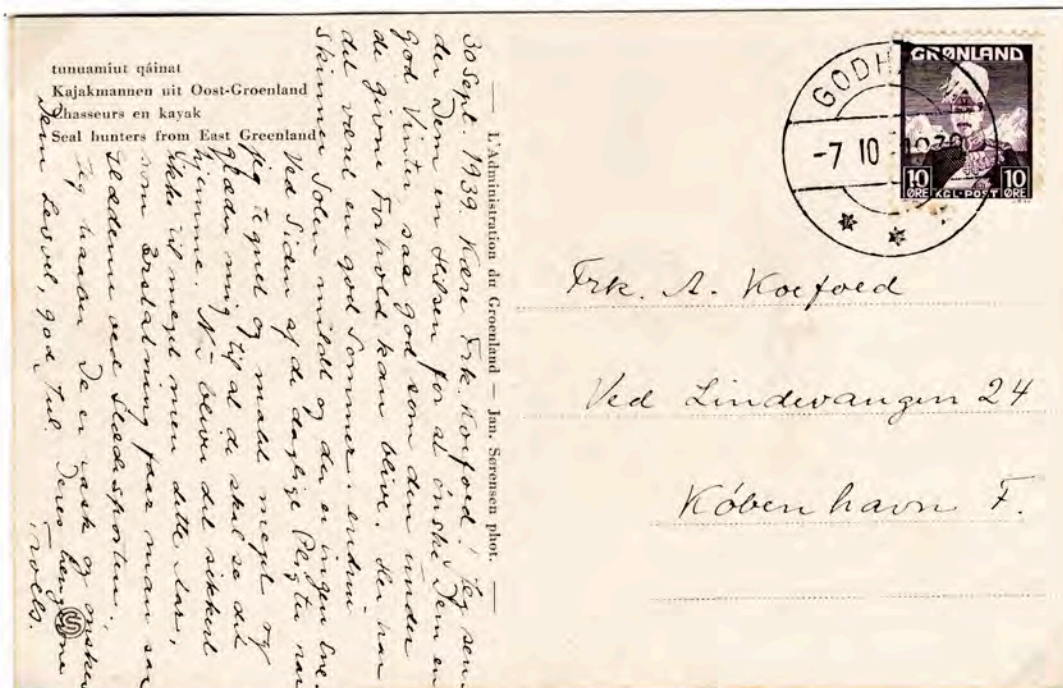 tunuamiut qáinat
Kajakmannen uit Oost-Groenland
Chasseurs en kayak
Seal hunters from East Greenland
L'Administration du Groenland — Jan. Sørensen phot.
30 Sept. 1939. Kære Frk. Koefoed! Jeg sen-
der Dem en Hilsen for at ønske Dem en
god Vinter, saa god som den under
de givne Forhold kan blive. Her har
det været en god Sommer, endnu
skinner Solen mildt og der er ingen Sne.
Ved Siden af de daglige Pligter har
jeg tegnet og malet meget og
glæder mig til at De skal se det
hjemme. Nu bliver det sikkert
ikke til meget mere dette Aar,
som Erstatning faar man saa
Glæderne ved Slædesporten.
Jeg haaber De er rask og ønsker
Dem Levvel, god Jul. Deres hengivne
Troels.
GRØNLAND
10 ØRE
KGL·POST
10 ØRE
-7 10
Frk. A. Koefoed
Ved Lindevangen 24
København F.